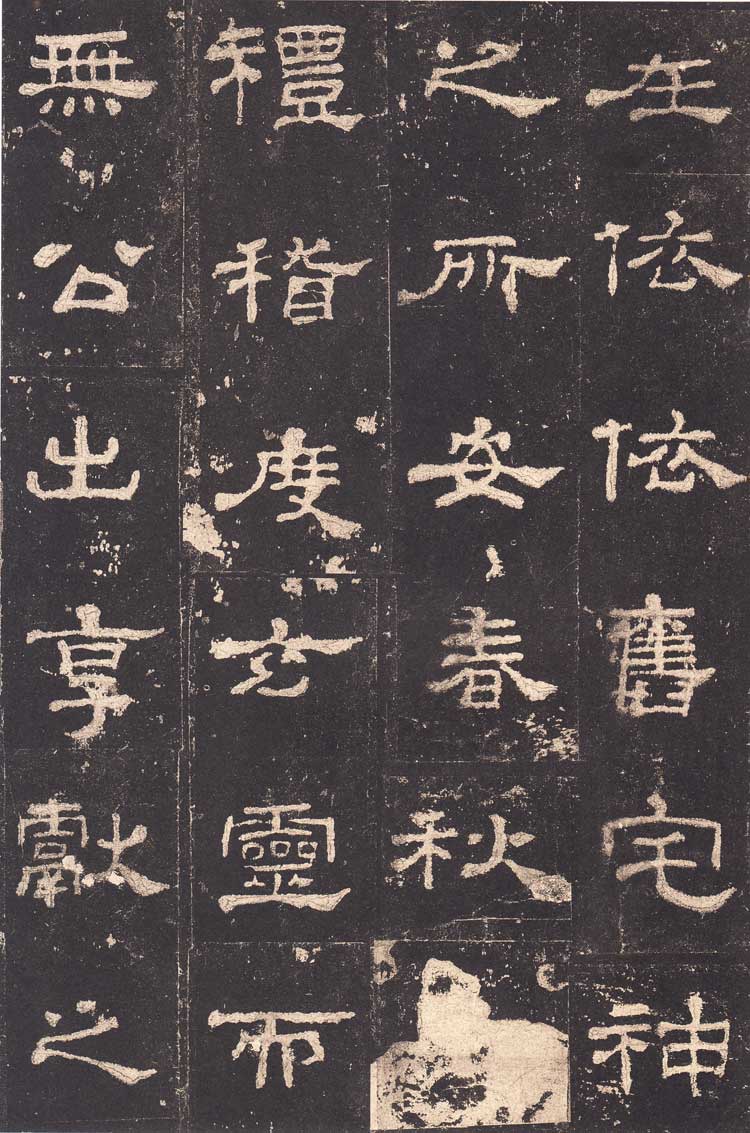 在依依舊宅神
之所安春秋
禮稽度玄靈而
無公出享獻之